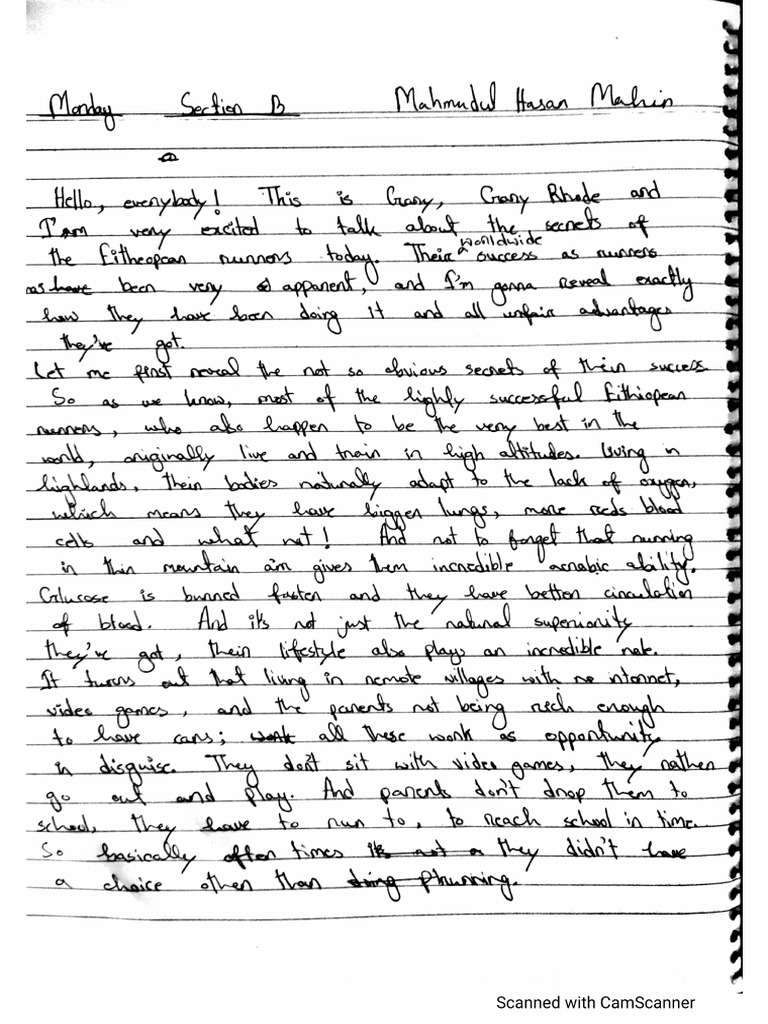 Monday Section B Mahmudul Hasan Mahin
Hello, everybody! This is Gary, Gary Rhode and
I'am very excited to talk about the secrets of
the Eitheopean runners today. Their worldwide success as runners
as have been very apparent, and I'm gonna reveal exactly
how they have been doing it and all unfair advantages
they've got.
Let me first reveal the not so obvious secrets of their success.
So as we know, most of the highly successful Eithiopean
runners, who also happen to be the very best in the
world, originally live and train in high altitudes. Living in
highlands, their bodies naturally adapt to the lack of oxygen,
which means they have bigger lungs, more reds blood
cells and what not! And not to forget that running
in thin mountain air gives them incredible aerobic ability.
Glucose is burned faster and they have better circulation
of blood. And it's not just the natural superiority
they've got, their lifestyle also plays an incredible role.
It turns out that living in remote villages with no internet,
video games, and the parents not being rich enough
to have cars; work all these work as opportunity
in disguise. They don't sit with video games, they rather
go out and play. And parents don't drop them to
school, they have to run to, to reach school in time.
So basically often times it's not a they didn't have
a choice other than doing running.
Scanned with CamScanner